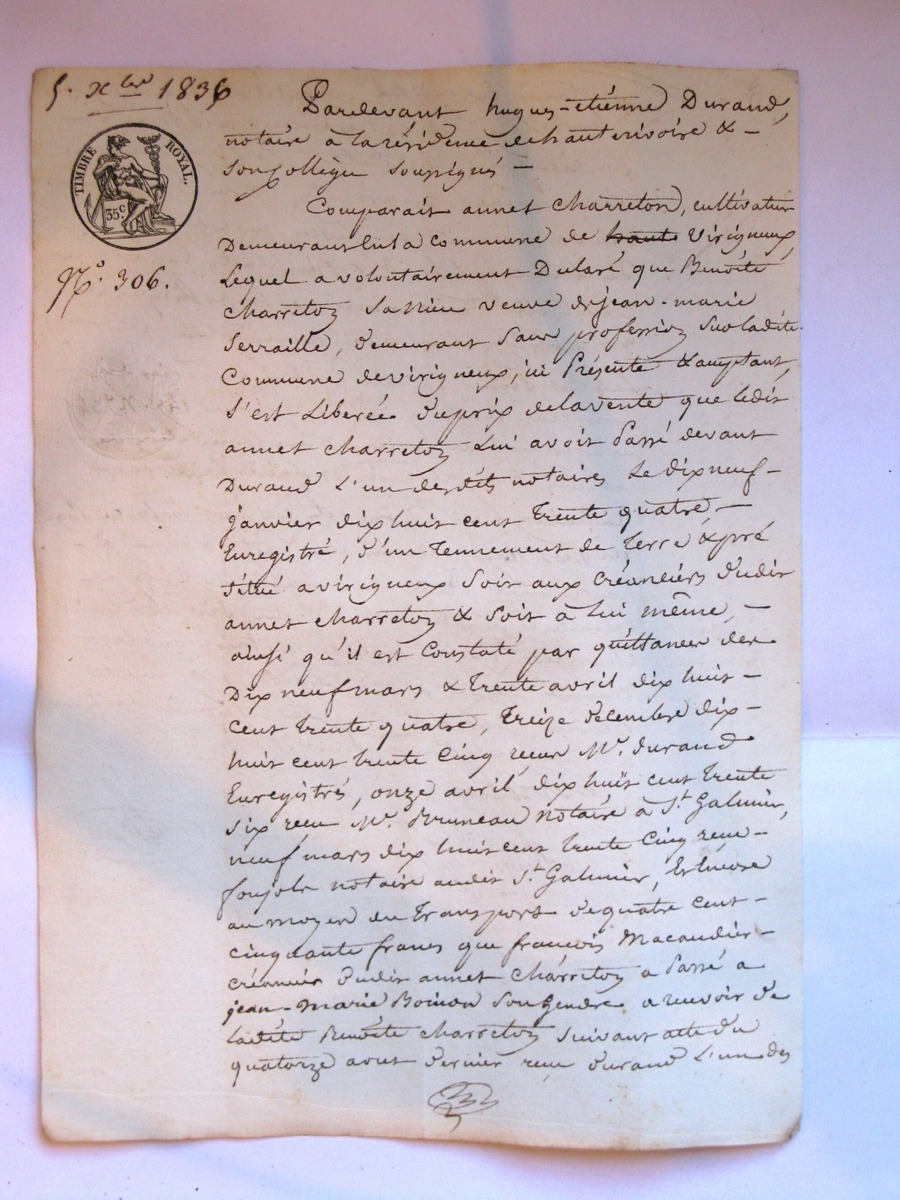 5. Xbre 1836
TIMBRE ROYAL.
35c
No. 306.
Pardevant hugues-étienne Durand,
notaire à la résidence de hauterivoire &
son Collègue soussignés —
Comparait annet Charreton, cultivateur
Demeurant sur la commune de haute Virigneux,
Lequel a volontairement Déclaré que Benoite
Charreton sa niece veuve de jean-marie
Serraille, demeurant sans profession sur ladite
Commune de virigneux, ici Présente & acceptant,
s'est Liberée du prix de la vente que ledit
annet charreton Lui avoit Passé devant
Durand L'un desdits notaires Le dix neuf
janvier dix huit cent trente quatre —
Enregistré, d'un Tennement de Terre & pré
situé a virigneux soit aux créanciers dudit
annet charreton & soit à Lui même, —
ainsi qu'il est Constaté par quittances des
Dix neuf mars & trente avril dix huit —
cent trente quatre, treize décembre dix —
huit cent trente cinq reçues Me. durand
Enregistrés, onze avril dix huit cent trente
six reçu Me. Bruneau notaire à St. Galmier,
neuf mars dix huit cent trente cinq reçu —
foujols notaire audit St. Galmier, & encore
au moyen du Transport de quatre cent —
cinquante francs que francois Macaudier —
créancier dudit annet Charreton a Passé a
jean-Marie Boinon son Gendre a recevoir de
Ladite Benoite Charreton suivant acte du
quatorze aout dernier reçu durand L'un des